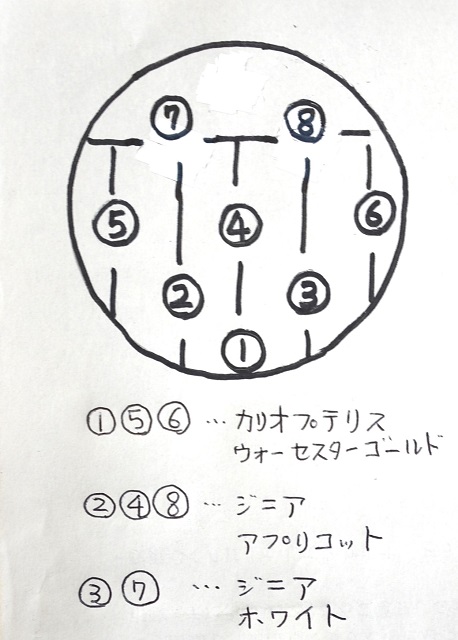 ⑦ ⑧
⑤ ④ ⑥
② ③
①
①⑤⑥…カリオプテリス
ウォーセスターゴールド
②④⑧…ジニア
アプリコット
③⑦…ジニア
ホワイト